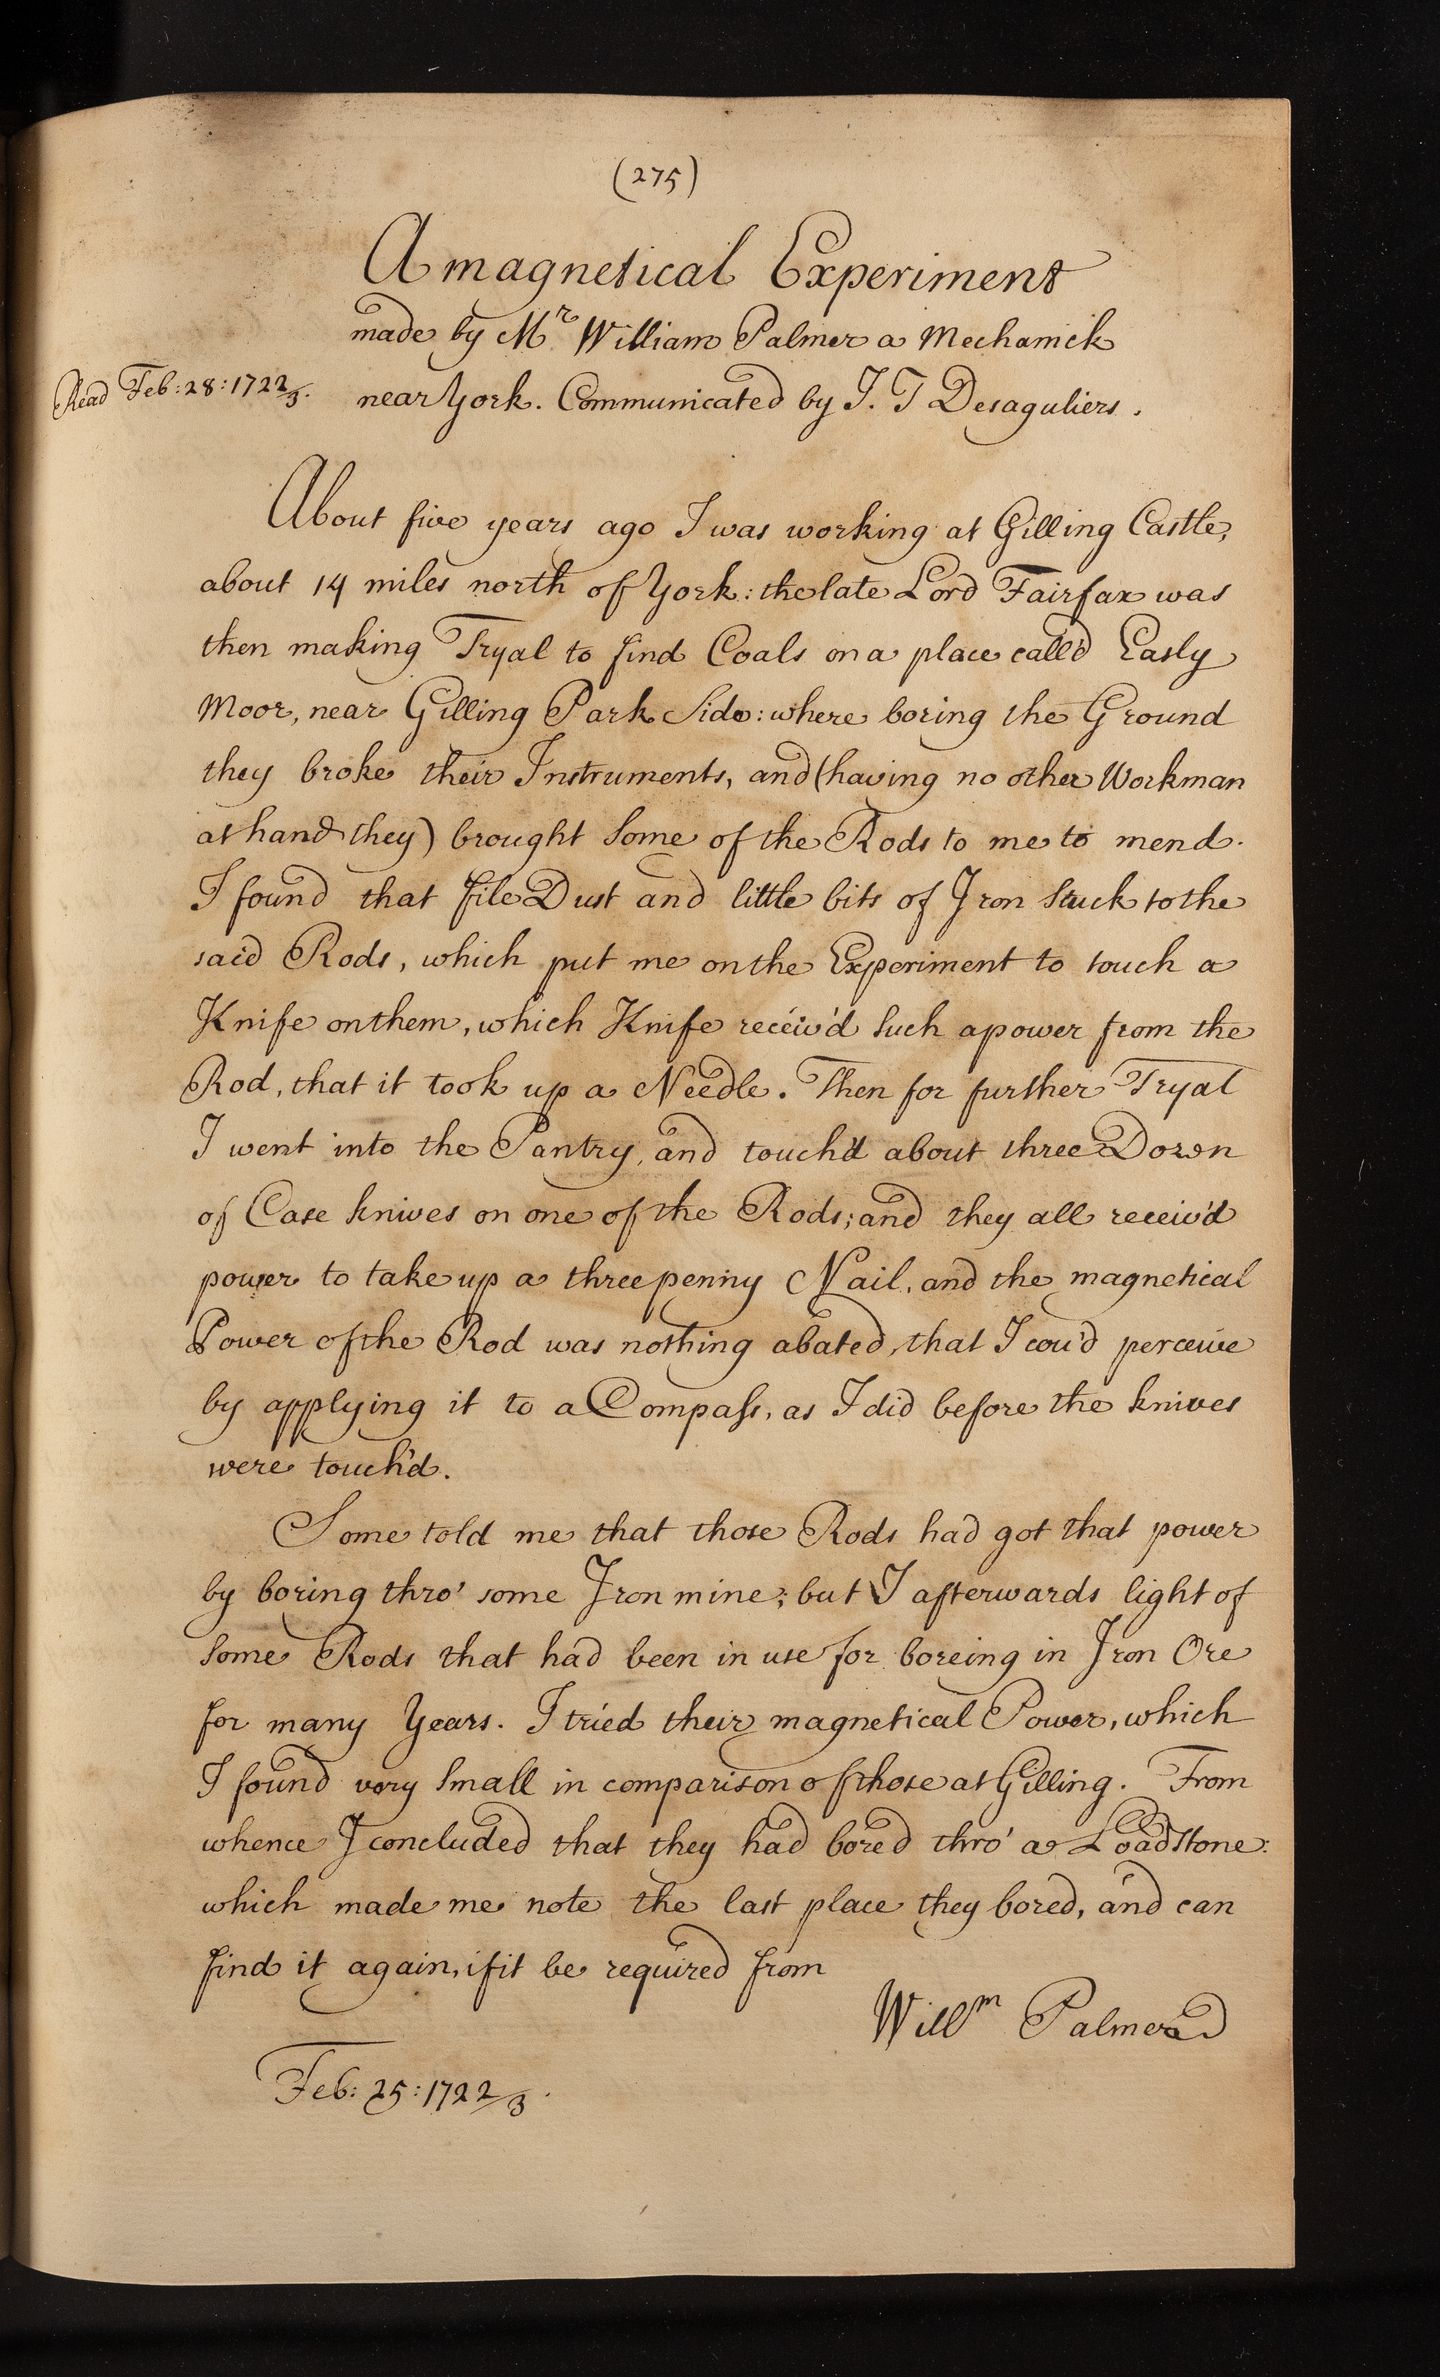 (275)
A magnetical Experiment
made by Mr William Palmer a Mechanick
Read Feb: 28: 1722/3.
near York. Communicated by J. T Desaguliers.
About five years ago I was working at Gilling Castle,
about 14 miles north of York: the late Lord Fairfax was
then making Tryal to find Coals on a place call'd Easly
Moor, near Gilling Park Side: where boring the Ground
they broke their Instruments, and (having no other Workman
at hand they) brought Some of the Rods to me to mend.
I found that file Dust and little bits of Iron Stuck to the
said Rods, which put me on the Experiment to touch a
Knife on them, which Knife receiv'd Such a power from the
Rod, that it took up a Needle. Then for further Tryal
I went into the Pantry, and touch'd about three Dozen
of Case knives on one of the Rods; and they all receiv'd
power to take up a three penny Nail, and the magnetical
Power of the Rod was nothing abated, that I cou'd perceive
by applying it to a Compass, as I did before the knives
were touch'd.
Some told me that those Rods had got that power
by boring thro' some Iron mine; but I afterwards light of
Some Rods that had been in use for boreing in Iron Ore
for many Years. I tried their magnetical Power, which
I found very Small in comparison of those at Gilling. From
whence I concluded that they had bored thro' a LoadStone:
which made me note the last place they bored, and can
find it again, if it be required from
Willm Palmer
Feb: 25: 1722/3.